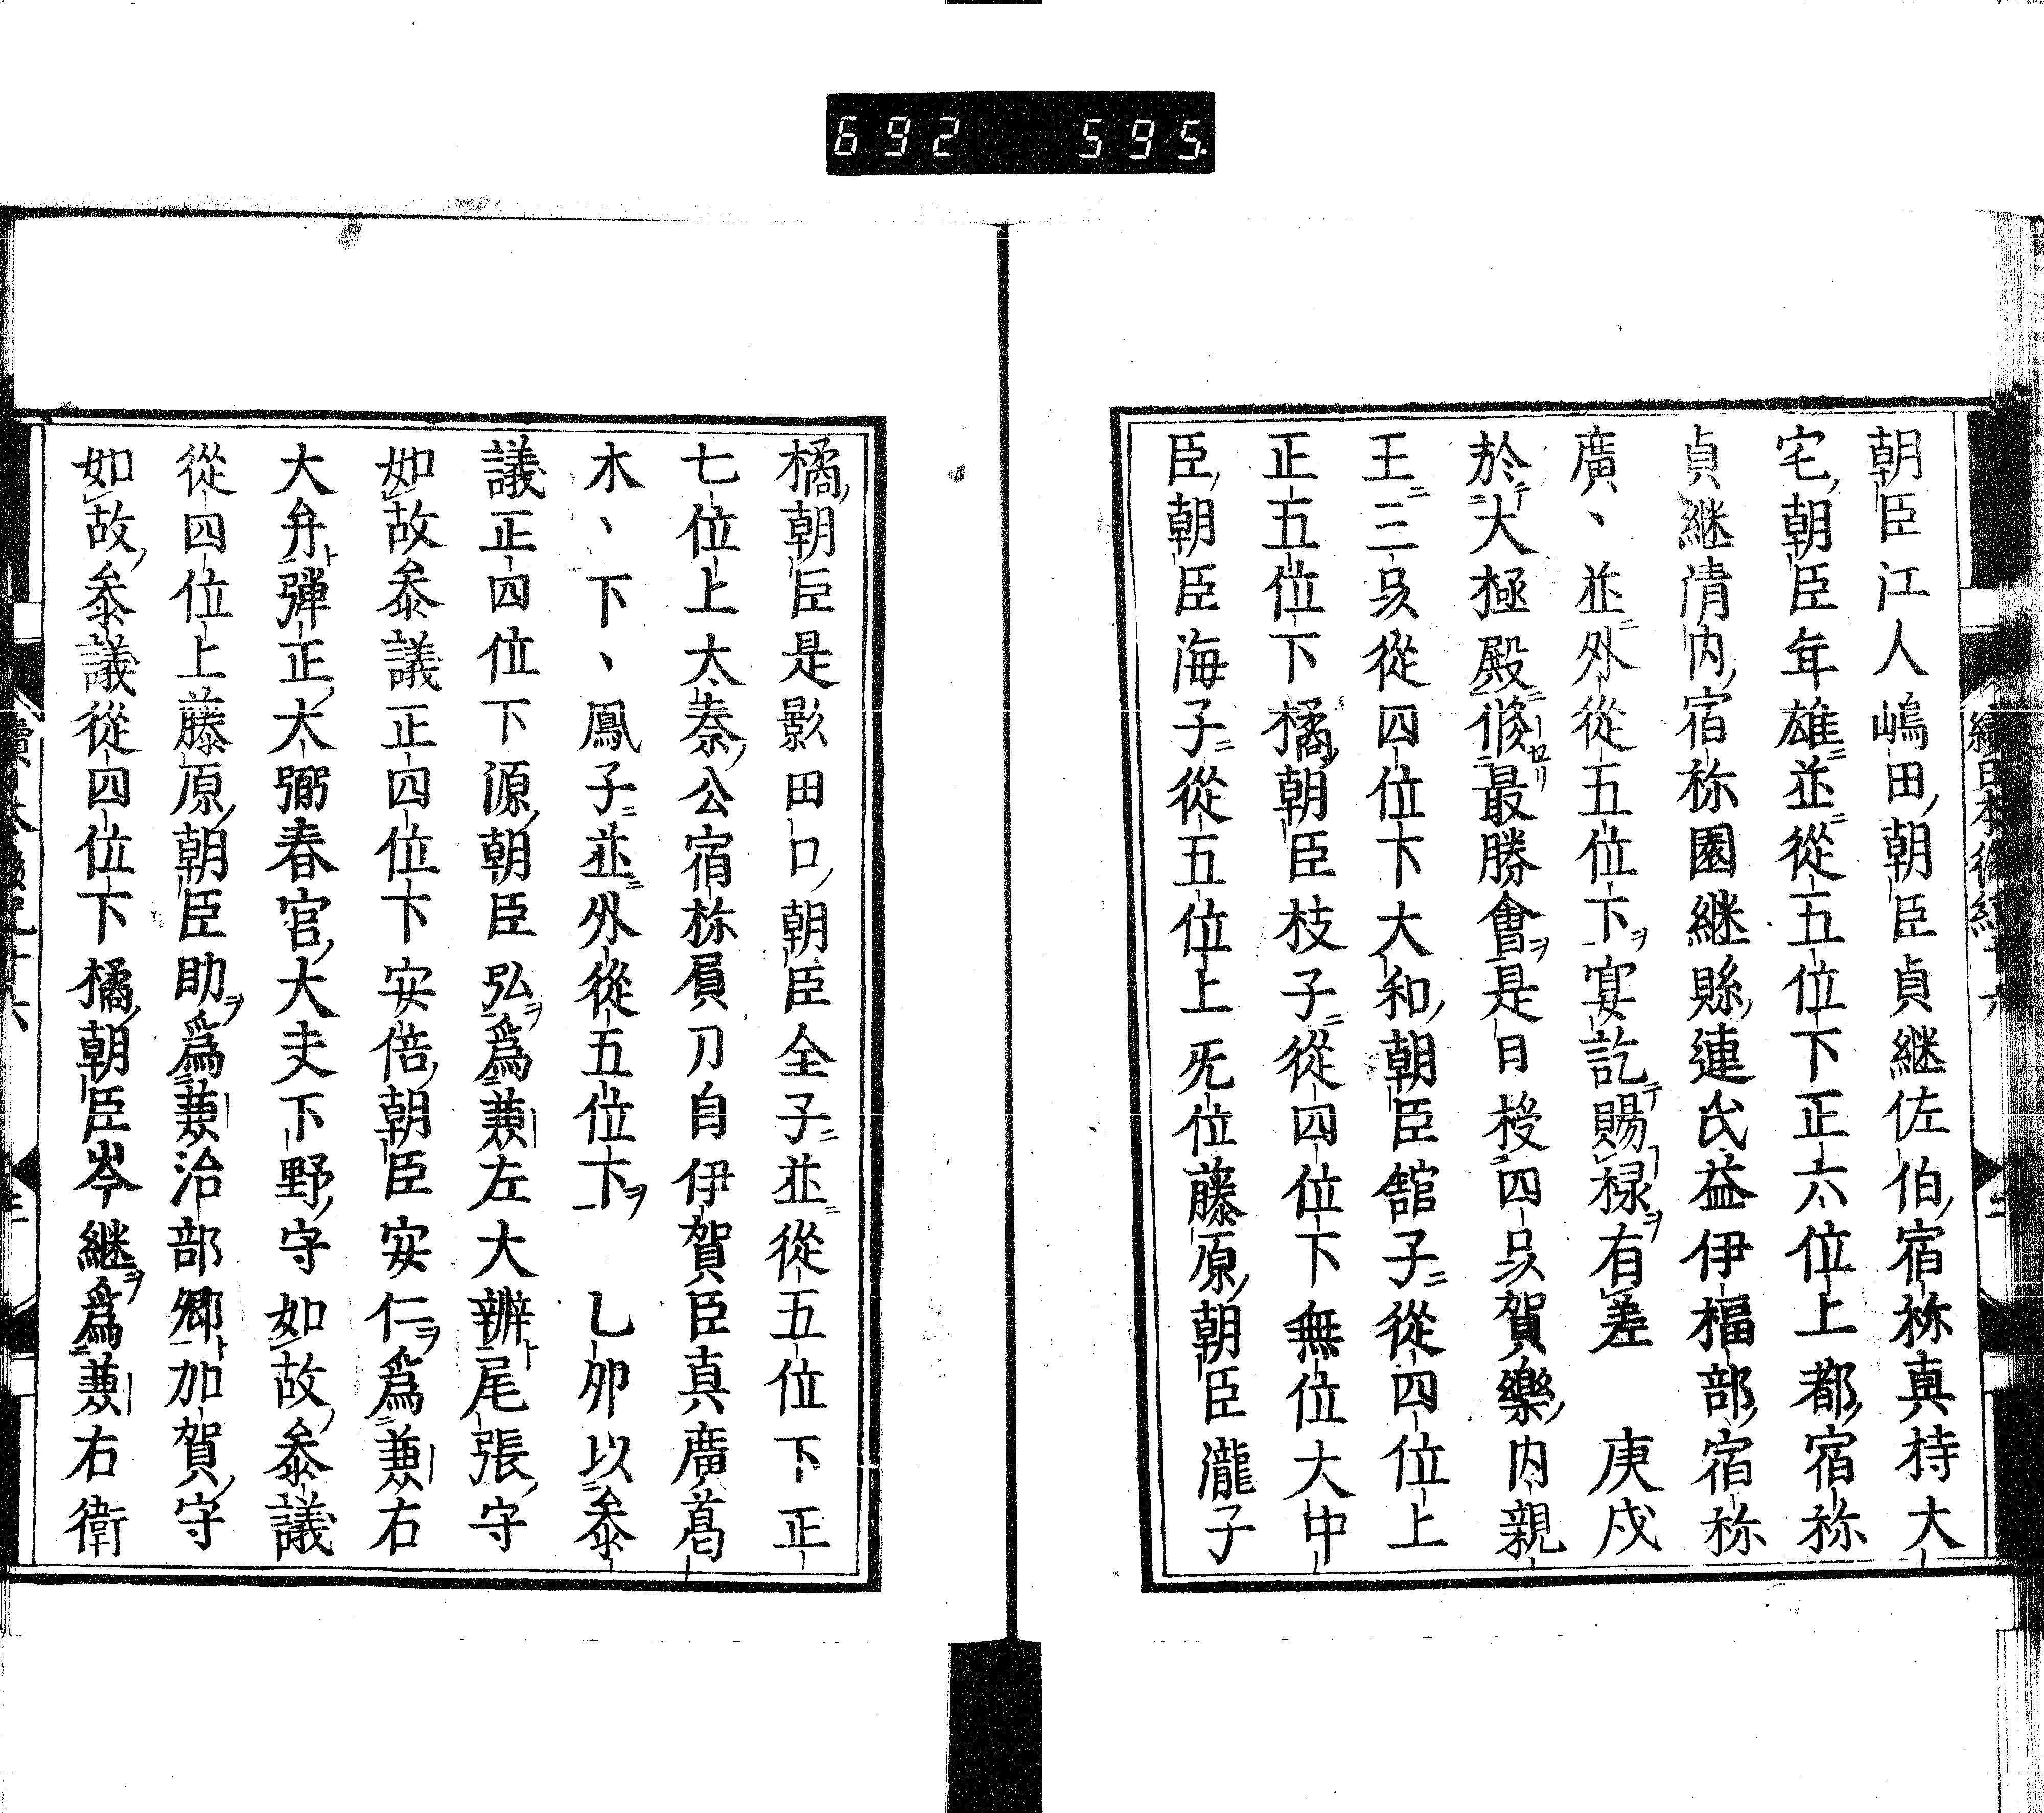 692 595.
朝臣江人嶋田朝臣貞継佐伯宿祢真持大
宅朝臣年雄並從五位下正六位上都宿祢
貞継清内宿祢園継縣連氏益伊福部宿祢
廣〻並外從五位下宴訖賜禄有差 庚戌
於大極殿修最勝會是日授四品賀樂内親
王三品從四位下大和朝臣舘子從四位上
正五位下橘朝臣枝子從四位下無位大中
臣朝臣海子從五位上无位藤原朝臣瀧子
橘朝臣是影田口朝臣全子並從五位下正
七位上太秦公宿祢屓刀自伊賀臣真廣葛
木〻下〻鳳子並外從五位下 乙卯以参
議正四位下源朝臣弘爲兼左大辨尾張守
如故参議正四位下安倍朝臣安仁爲兼右
大弁彈正大弼春宮大夫下野守如故参議
從四位上藤原朝臣助爲兼治部卿加賀守
如故参議從四位下橘朝臣岑継爲兼右衛